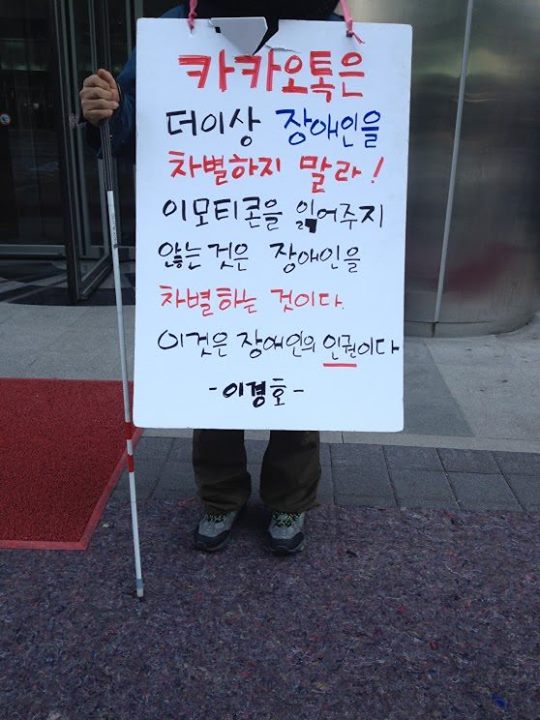 카카오톡은
더이상 장애인을
차별하지 말라!
이모티콘을 읽어주지
않는것은 장애인을
차별하는 것이다.
이것은 장애인의 인권이다
-이경호-